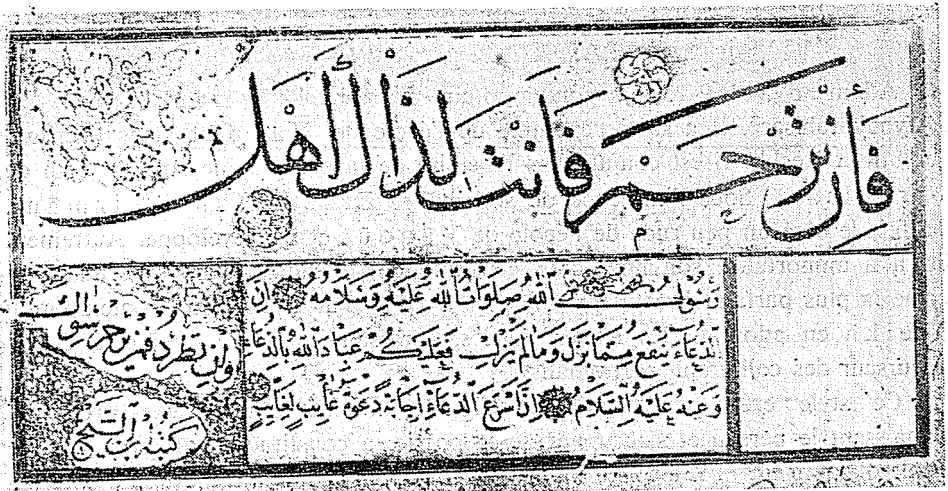 فأن ترحم فانت لذاك أهل
رسول الله صلوات الله عليه وسلامه ان
الدعاء ينفع مما نزل ومالم ينزل فعليكم عباد الله بالدعاء
وعنه عليه السلام ان اسرع الدعاء اجابة دعوة غايب لغايب
وان تطرد فمن يرحم سواك
كتبه ابن الشيخ